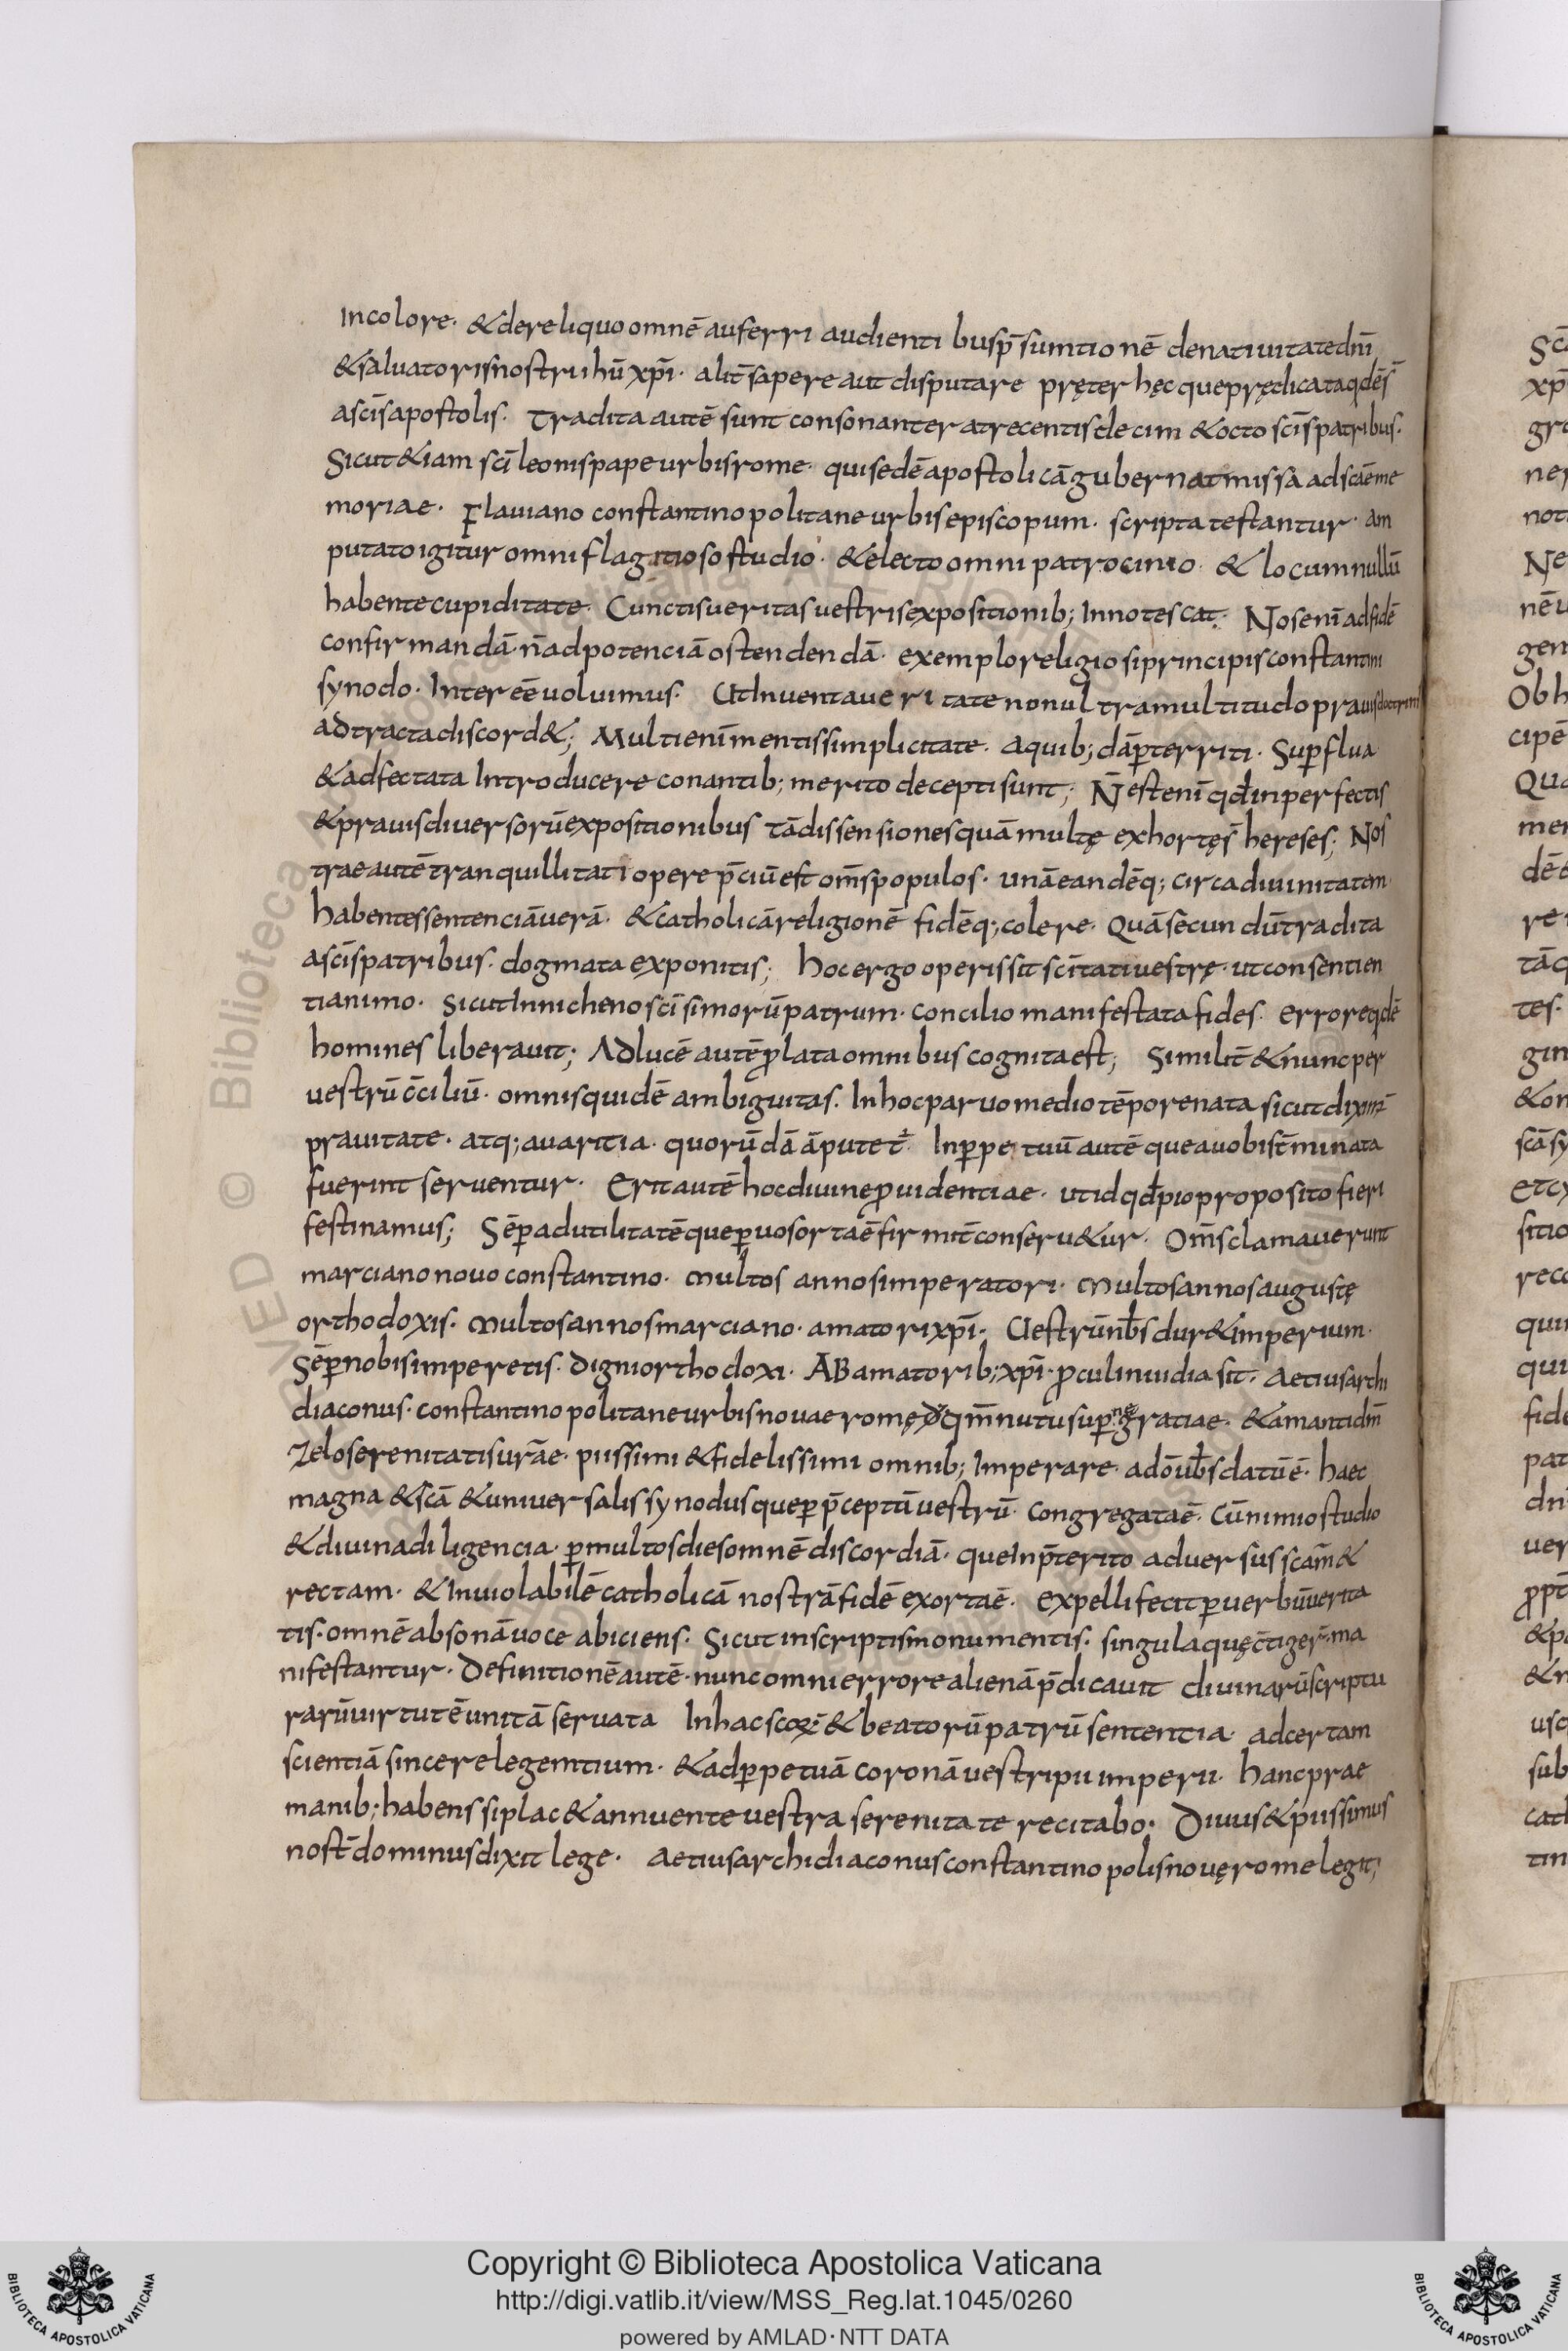 Incolore· & dereliquo omnē auferri audienti busp̄sumtionē denatiuitate dn̄i
& saluatoris nostri ihū xp̄i· alit̄ sapere aut disputare pręter hęc que prędicata qdēs
ascīs apostolis· Tradita autē sunt consonanter atrecentis decim & octo scīs patribus·
Sicut & iam scī leonis pape urbis rome· qui sedē apostolicā gubernat missā ad scāē me
moriae· Flauiano constantinopolitane urbis episcopum· scripta testantur· am
putato igitur omni flagitioso studio· & electo omni patrocinio· & locum nullū
habente cupiditate· Cunctis ueritas uestris expositionib; Innotescat· Nos enī ad fidē
confirmandā· n̄ ad potenciā ostendendā· exemplo religiosi principis constantini
synodo· Interēē uoluimus· Ut Inuenta ueritate non ultra multitudo prauis doctrinis
adtracta discord&; Multi enī mentis simplicitate· aquib;dā p̄territi· Sup̄flua
& adfectata Introducere conantib; merito decepti sunt; N̄ est enī qd̄ inperfectis
& prauis diuersorū expositionibus tā dissensiones quā multę exhortęs̄ hereses; Nos
trae autē tranquillitati opere p̄ciū est om̄s populos· unā eandēq; circa diuinitatem
habentes sentenciā uerā· & catholicā religionē fidēq; colere· Quā secundū tradita
ascīs patribus· dogmata exponitis; hoc ergo operis sit scītati uestrę· ut consentien
ti animo· Sicut In nicheno scīsimorū patrum· concilio manifestata fides· errore qdē
homines liberauit; Ad lucē autē p̄lata omnibus cognita est; Similit̄ & nunc per
uestrū c̄ciliū· omnis quidē ambiguitas· In hoc paruo medio tēpore nata sicut diximꝰ
prauitate· atq; auaritia· quorūdā āputet᷑· In p̄petuū autē que a uobis t̄minata
fuerint seruentur· Erit autē hoc diuine p̄uidentiae· ut id qd̄ pio proposito fieri
festinamus; Sēp ad utilitatē que p̄ uos orta ē firmit̄ conseru&ur· Om̄s clamauerunt
marciano nouo constantino· multos annos imperatori· multos annos augustę
orthodoxis· multos annos marciano· amatori xp̄i· Uestrūnb̄s dur& imperium·
Sēp nobis imperetis· digni orthodoxi· AB amatorib; xp̄i· p̄cul inuidia sit· Aetius archi
diaconus· constantinopolitane urbis nouae romę qm̄ nutu sup̄ne gratiae· & amanti dm̄
Zelo serenitatis ur̄ae· piissimi & fidelissimi omnib; Imperare· adō ub̄s datū ē· haec
magna & scā & uniuersalis synodus que p̄ p̄ceptū uestrū· congregata ē· Cū nimio studio
& diuina diligencia· p̄ multos dies omnē discordiā· que In p̄terito aduersus scam̄ &
rectam· & Inuiolabilē catholicā nostrā fidē exorta ē· expelli fecit p̄ uerbū uerita
tis· omnē absonā uoce abiciens· Sicut in scriptis monumentis· singula quę c̄tiger̄· ma
nifestantur· Definitionē autē· nunc omni errore alienā p̄dicauit diuinarū scriptu
rarū uirtutē unitā seruata In hac scorꝛ̄ & beatorū patrū sententia· ad certam
scientiā sincere legemtium· & ad p̄petuā coronā uestri pii imperii· hanc prae
manib; habens si plac& annuente uestra serenitate recitabo· Diuus & piissimus
nost̄ dominus dixit lege· Aetius archidiaconus constantinopolis nouę rome legit;
Copyright © Biblioteca Apostolica Vaticana
http://digi.vatlib.it/view/MSS_Reg.lat.1045/0260
powered by AMLAD·NTT DATA
BIBLIOTECA APOSTOLICA VATICANA
BIBLIOTECA APOSTOLICA VATICANA